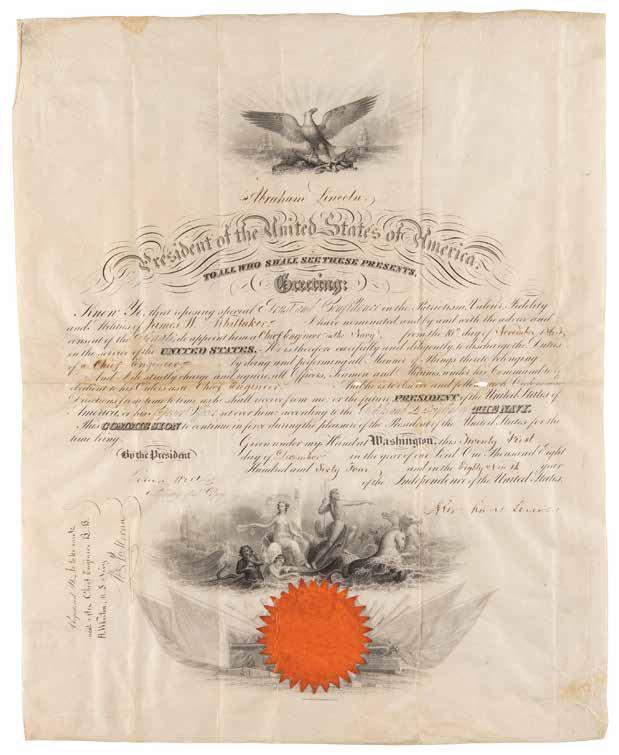 Abraham Lincoln,
President of the United States of America.
TO ALL WHO SHALL SEE THESE PRESENTS,
Greeting:
Know Ye, that reposing special Trust and Confidence in the Patriotism, Valor, Fidelity
and Abilities of James W. Whittaker I have nominated and by and with the advice and
consent of the Senate do appoint him a Chief Engineer in the Navy from the 10th day of November 1863,
in the service of the UNITED STATES. He is therefore carefully and diligently to discharge the Duties
of a Chief Engineer by doing and performing all Manner of Things thereto belonging
And I do strictly charge and require all Officers, Seamen and Marines under his Command to be
obedient to his Orders as a Chief Engineer And he is to observe and follow such Orders and
Directions from time to time as he shall receive from me or the future PRESIDENT of the United States of
America, or his Superior Officer set over him, according to the THE NAVY.
This COMMISSION to continue in force during the pleasure of the President of the United States for the
time being.
Given under my Hand at Washington, this Twenty First
By the President
day of December in the year of our Lord One Thousand Eight
Hundred and Sixty Four and in the Eighty Ninth year
of the Independence of the United States.
Abraham Lincoln
Secretary of the Navy
next after Chief Engineer
U. S. Navy